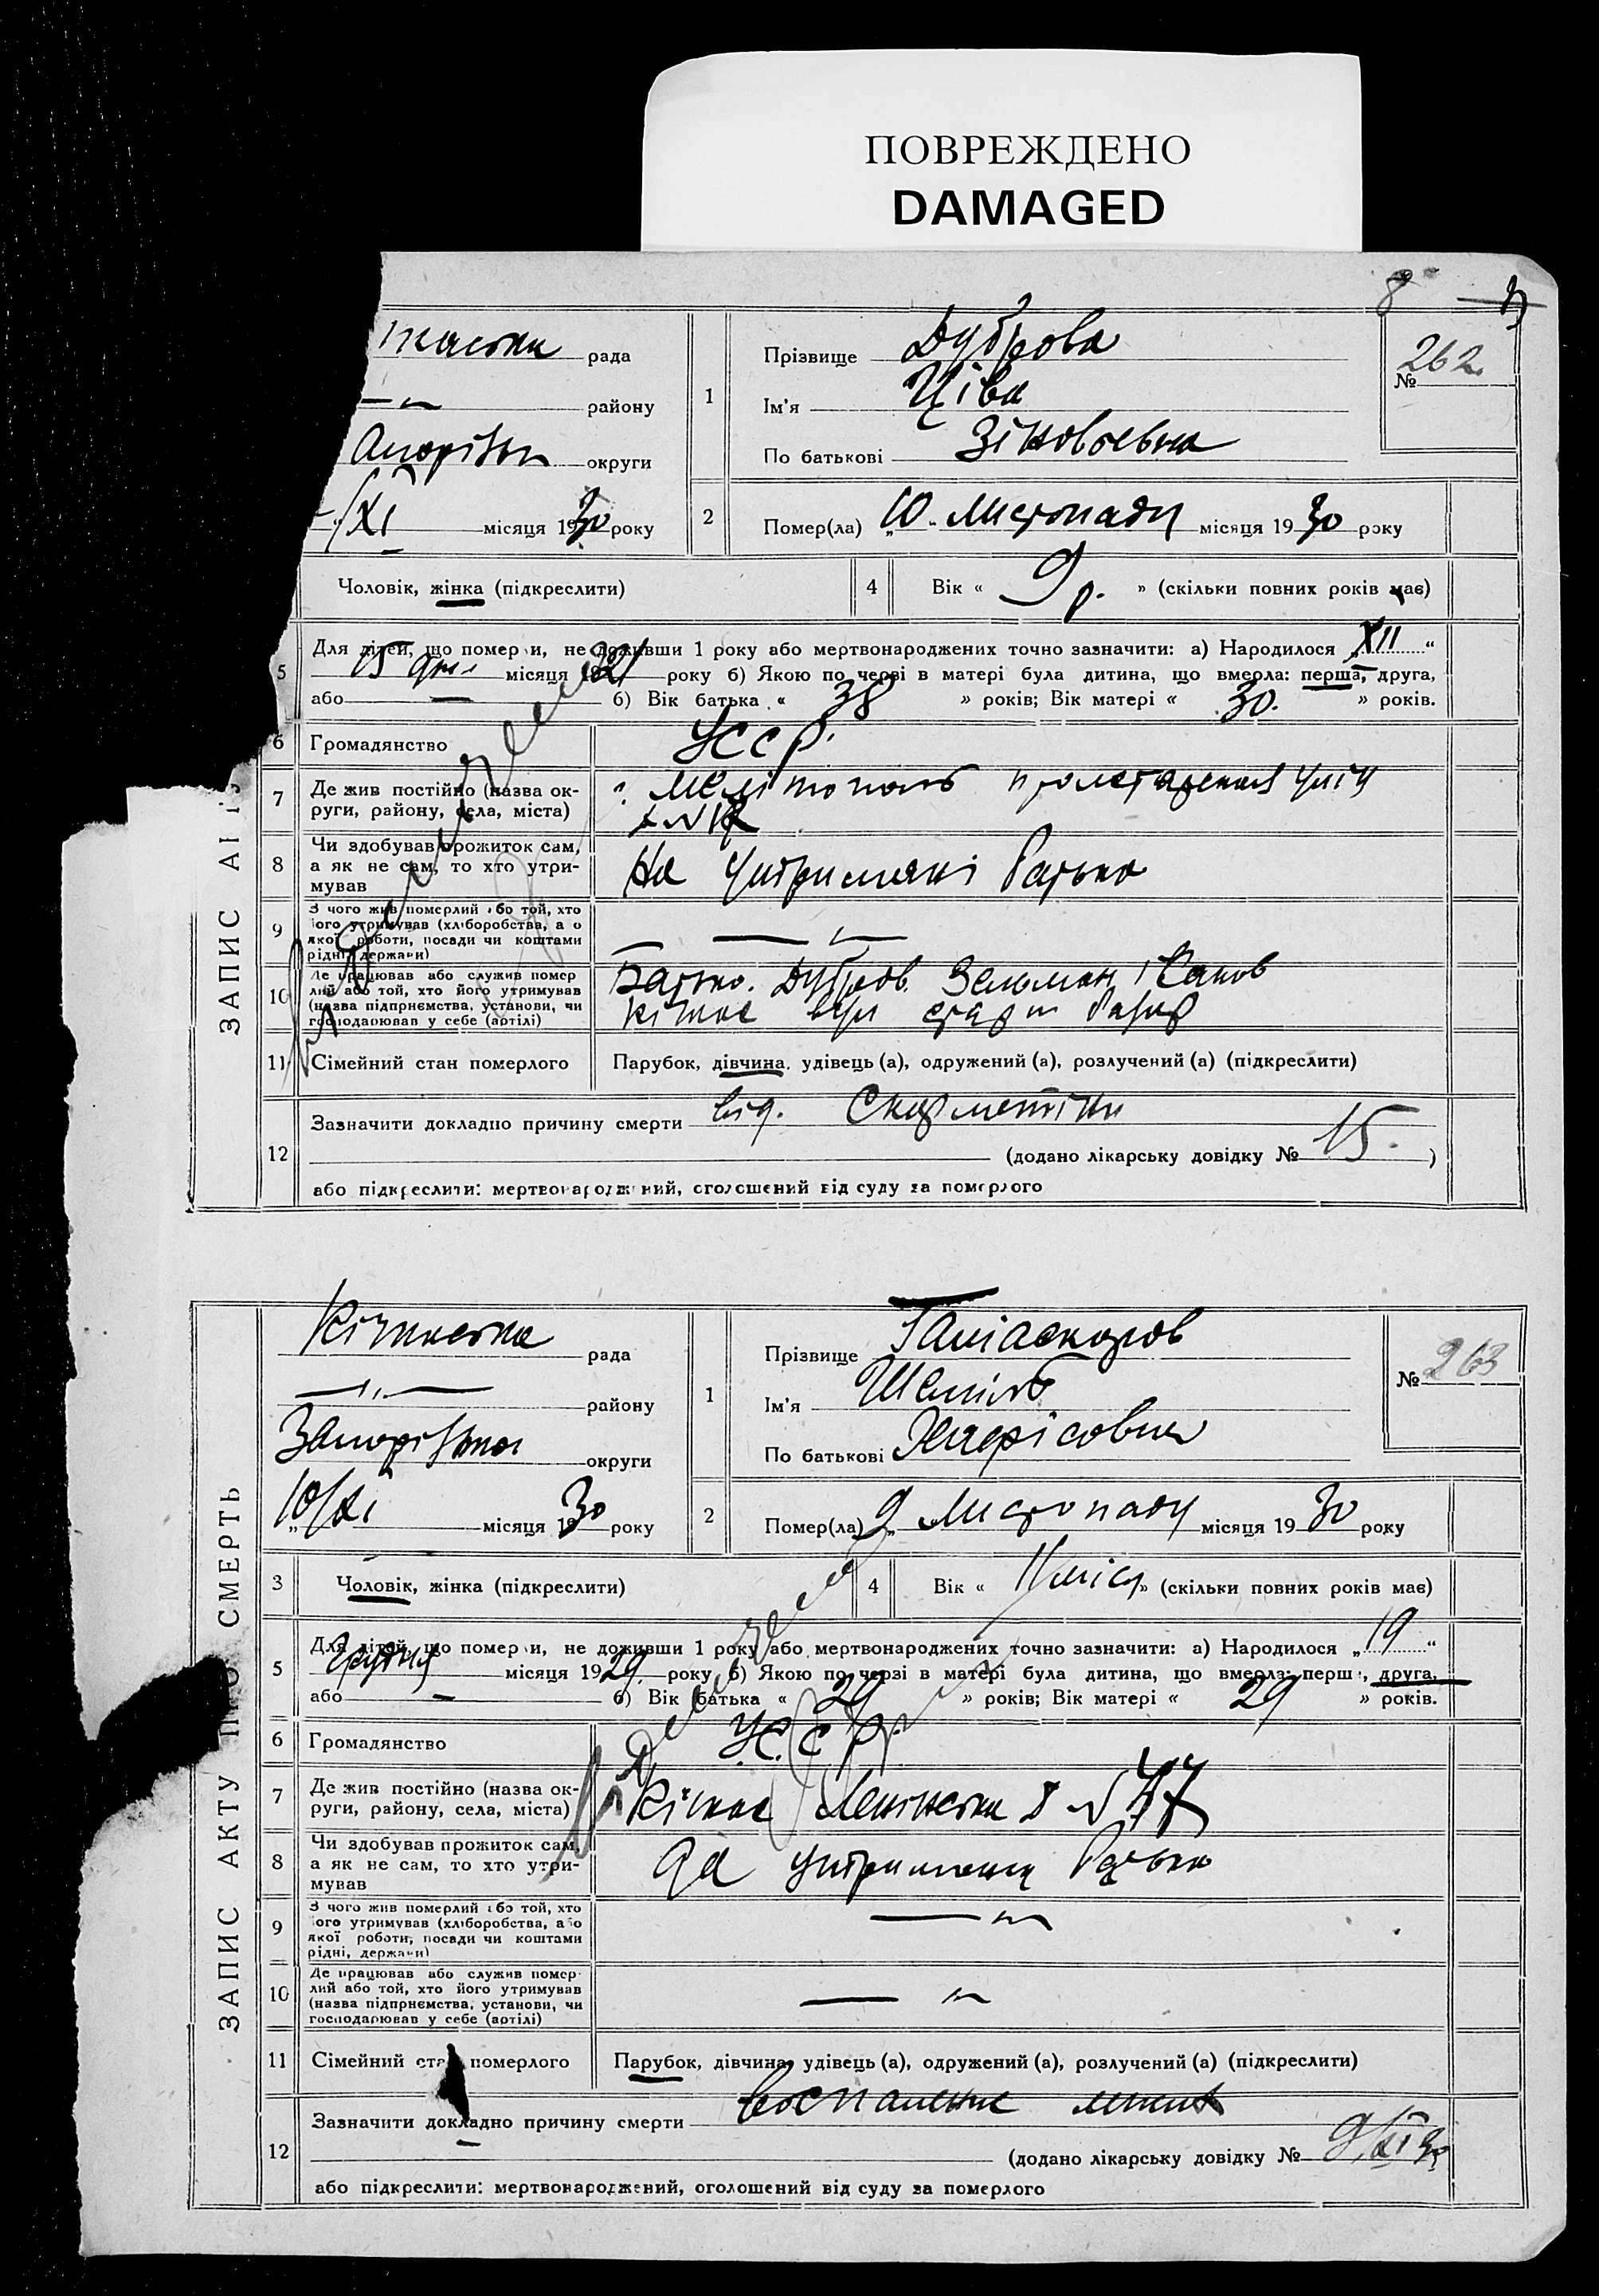 ПОВРЕЖДЕНО
DAMAGED
8
рада
району
округи
/XI місяця 1930 року
1
Прізвище Дуброва
Ім'я Ціва
По батькові Зіновьевна
№ 262
2
Помер(ла) „10 Листопаду місяця 1930 року
Чоловік, жінка (підкреслити)
4
Вік « 9 р. » (скільки повних років має)
5
Для дітей, що померли, не доживши 1 року або мертвонароджених точно зазначити: а) Народилося „XII“
15 дня місяця 1921 року б) Якою по черзі в матері була дитина, що вмерла: перша, друга,
або — б) Вік батька « 38 » років; Вік матері « 30. » років.
6
Громадянство
УССР.
7
Де жив постійно (назва округи, району, села, міста)
Мелітополь
8
Чи здобував прожиток сам, а як не сам, то хто утримував
На утриманні батька
9
З чого жив померлий або той, хто його утримував (хліборобства, або якої роботи, посади чи коштами рідні, держави)
10
Де працював або служив померлий або той, хто його утримував (назва підприємства, установи, чи господарював у себе (артілі)
Батько. Дубров. Зельман
11
Сімейний стан померлого
Парубок, дівчина, удівець (а), одружений (а), розлучений (а) (підкреслити)
12
Зазначити докладно причину смерти від. Скарлатіни
(додано лікарську довідку № 15. )
або підкреслити: мертвонароджений, оголошений від суду за померлого
ЗАПИС АКТУ ПРО СМЕРТЬ
Кічкаська рада
—„— району
Запоріжької округи
„10/XI місяця 1930 року
1
Прізвище
Ім'я
По батькові
№ 263
2
Помер(ла) 9 „ Листопаду місяця 1930 року
3
Чоловік, жінка (підкреслити)
4
Вік « 11 міся » (скільки повних років має)
5
Для дітей, що померли, не доживши 1 року або мертвонароджених точно зазначити: а) Народилося „19“
Грудня місяця 1929 року б) Якою по черзі в матері була дитина, що вмерла: перша, друга,
або — б) Вік батька « 29 » років; Вік матері « 29 » років.
6
Громадянство
УССР.
7
Де жив постійно (назва округи, району, села, міста)
Кічкас Ленінська № 47
8
Чи здобував прожиток сам, а як не сам, то хто утримував
На утриманні батька
9
З чого жив померлий або той, хто його утримував (хліборобства, або якої роботи, посади чи коштами рідні, держави)
— „ —
10
Де працював або служив померлий або той, хто його утримував (назва підприємства, установи, чи господарював у себе (артілі)
— „ —
11
Сімейний стан померлого
Парубок, дівчина, удівець (а), одружений (а), розлучений (а) (підкреслити)
12
Зазначити докладно причину смерти воспаление легких
(додано лікарську довідку № 9/XI 30
або підкреслити: мертвонароджений, оголошений від суду за померлого